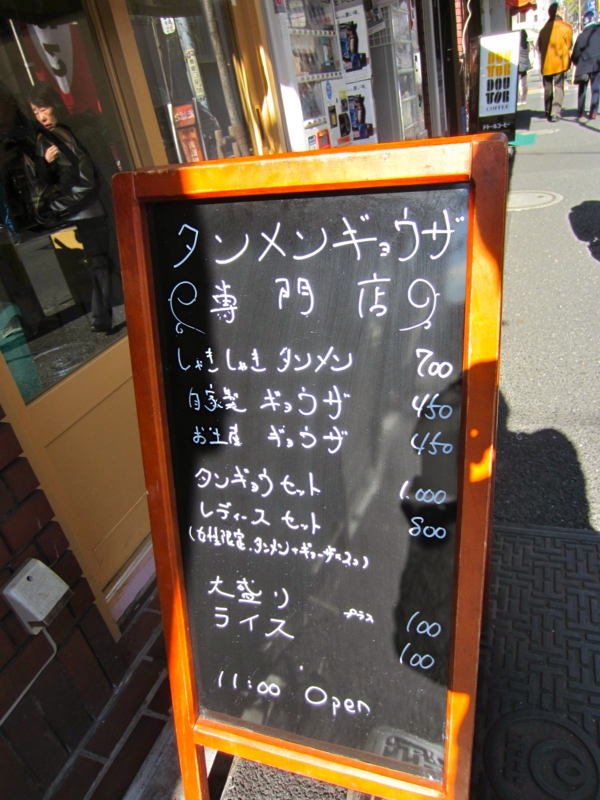 タンメンギョウザ
専門店
しゃきしゃき タンメン 700
自家製 ギョウザ 450
お土産 ギョウザ 450
タンギョウセット 1.000
レディースセット 800
(女性限定.タンメン+ギョーザ
大盛り プラス 100
ライス 100
11:00 Open
DOU
TOR
COFFEE
ドトールコーヒー